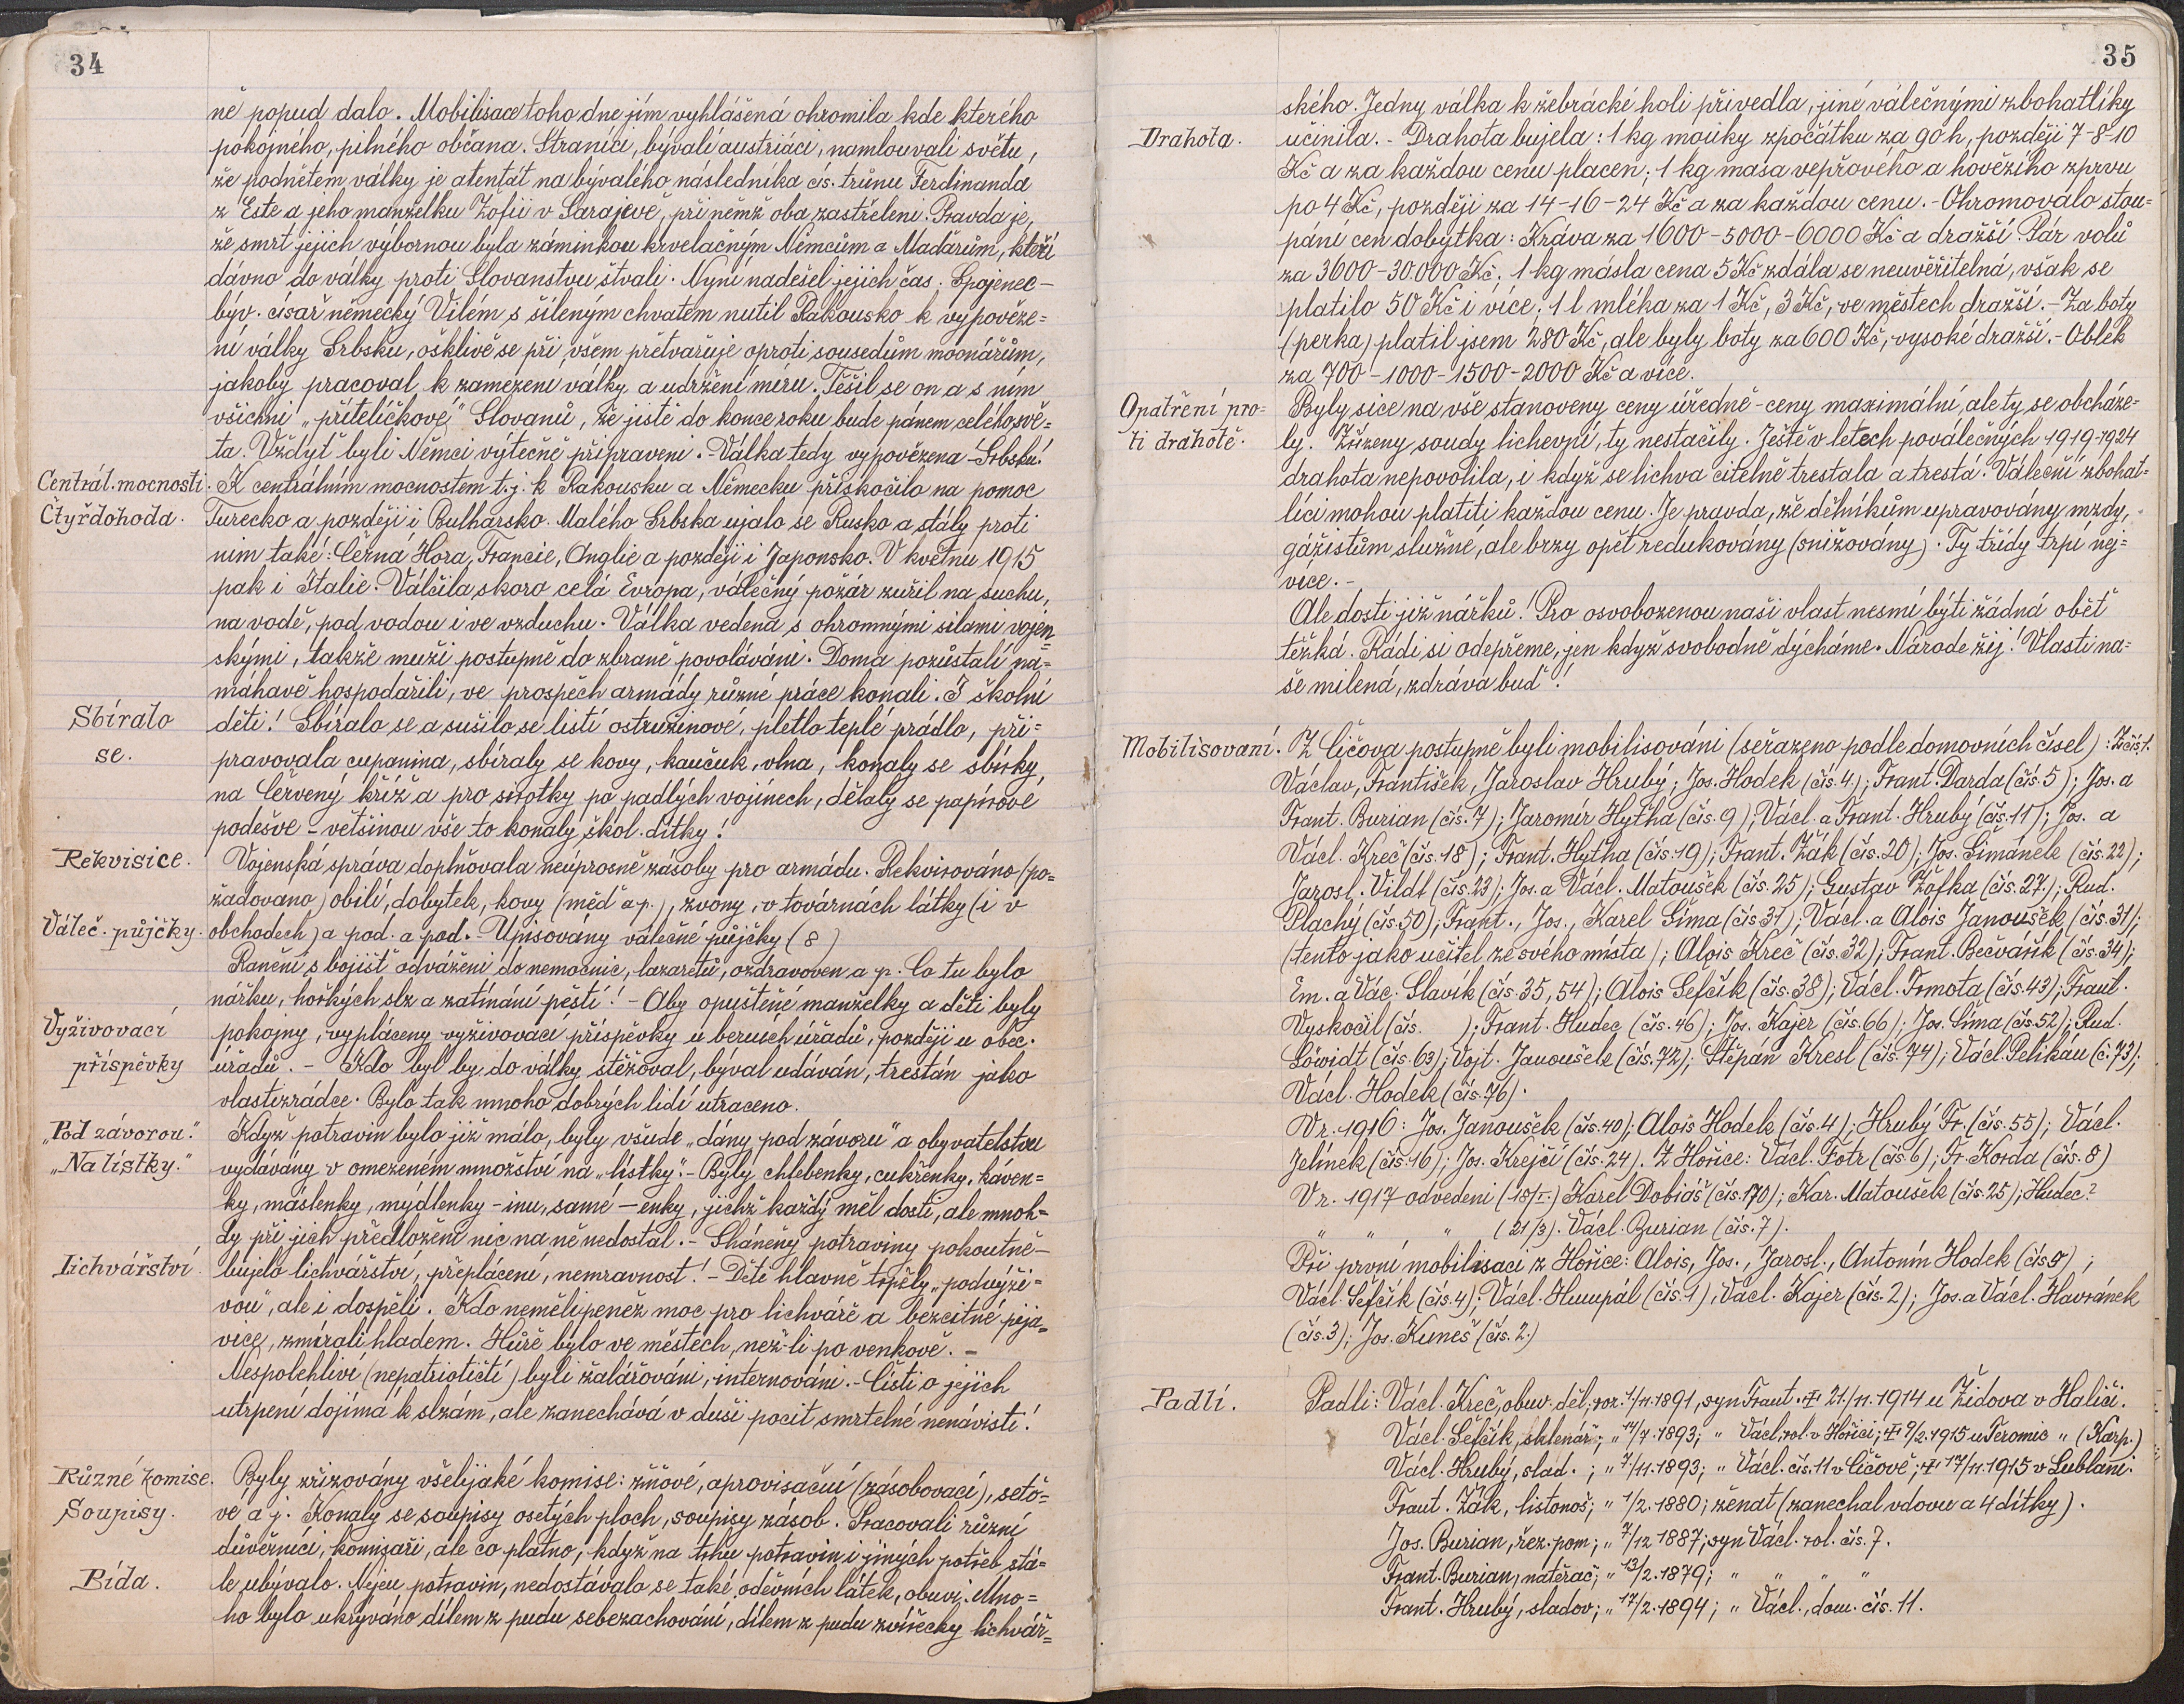 34
ně popud dalo. Mobilisace toho dne jím vyhlášená ohromila kde kterého
pokojného, pilného občana. Straníci, bývalí austriáci, namlouvali světu,
že podnětem války je atentát na bývalého následníka cís. trůnu Ferdinanda
z Este a jeho manželku Žofii v Sarajevě, při němž oba zastřeleni. Pravda je,
že smrt jejich výbornou byla záminkou krvelačným Němcům a Maďarům, kteří
dávno do války proti Slovanstvu štvali. Nyní nadešel jejich čas. Spojenec –
býv. císař německý Vilém s šíleným chvatem nutil Rakousko k vypověze=
ní války Srbsku, ošklivě se při všem přetvařuje oproti sousedům mocnářům,
jakoby pracoval k zamezení války a udržení míru. Těšil se on a s ním
všichni „přítelíčkové" Slovanů, že jistě do konce roku bude pánem celého svě=
ta. Vždyť byli Němci výtečně připraveni. Válka tedy vypovězena – Srbsku!
Centrál. mocnosti. K centrálním mocnostem t. j. k Rakousku a Německu přiskočilo na pomoc
Čtyřdohoda. Turecko a později i Bulharsko. Malého Srbska ujalo se Rusko a stály proti
nim také: Černá Hora, Francie, Anglie a později i Japonsko. V květnu 1915
pak i Itálie. Válčila skoro celá Evropa, válečný požár zuřil na suchu,
na vodě, pod vodou i ve vzduchu. Válka vedena s ohromnými silami vojen=
skými, takže muži postupně do zbraně povoláváni. Doma pozůstalí na=
máhavě hospodařili, ve prospěch armády různé práce konali. I školní
Sbíralo děti! Sbíralo se a sušilo se listí ostružinové, pletlo teplé prádlo, při=
se. pravovala cupanina, sbíraly se kovy, kaučuk, vlna, konaly se sbírky
na Červený kříž a pro sirotky po padlých vojínech, dělaly se papírové
podešve – většinou vše to konaly škol. dítky!
Rekvisice. Vojenská správa doplňovala neúprosně zásoby pro armádu. Rekvirováno (po=
žadováno) obilí, dobytek, kovy (měď a p.), zvony, v továrnách látky (i v
Váleč. půjčky. obchodech) a pod. a pod. – Upisovány válečné půjčky (8)
Ranění s bojišť odváženi do nemocnic, lazaretů, ozdravoven a p. Co tu bylo
nářku, hořkých slz a zatínání pěstí! – Aby opuštěné manželky a děti byly
Vyživovací pokojny, vypláceny vyživovací příspěvky u berních úřadů, později u obec.
příspěvky úřadů. – Kdo byl by do války stěžoval, býval udáván, trestán jako
vlastizrádce. Bylo tak mnoho dobrých lidí utraceno.
„Pod závorou." Když potravin bylo již málo, byly všude „dány pod závoru" a obyvatelstvu
„Na lístky." vydávány v omezeném množství na „lístky". – Byly chlebenky, cukřenky, káven=
ky, máslenky, mýdlenky – inu, samé – enky, jichž každý měl dosti, ale mnoh=
dy při jich předložení nic na ně nedostal. – Sháněny potraviny pokoutně –
Lichvářství. bujelo lichvářství, přeplácení, nemravnost! – Děti hlavně trpěly „podvýži=
vou", ale i dospělí. Kdo neměli peněz moc pro lichváře a bezcitné pija=
vice, zmírali hladem. Hůře bylo ve městech, než-li po venkově. –
Nespolehliví (nepatriotičtí) byli žalářováni, internováni. – Čísti o jejich
utrpení dojímá k slzám, ale zanechává v duši pocit smrtelné nenávisti!
Různé komise. Byly zřizovány všelijaké komise: žňové, aprovisační (zásobovací), seťo=
Soupisy. vé a j. Konaly se soupisy osetých ploch, soupisy zásob. Pracovali různí
důvěrníci, komisaři, ale co platno, když na trhu potravin i jiných potřeb stá=
Bída. le ubývalo. Nejen potravin, nedostávalo se také oděvních látek, obuvi. Mno=
ho bylo ukrýváno dílem z pudu sebezachování, dílem z pudu zvířecky lichvář=
35
ského. Jedny válka k žebrácké holi přivedla, jiné válečnými zbohatlíky
Drahota. učinila. – Drahota bujela: 1 kg mouky zpočátku za 90 h, později 7-8-10
Kč a za každou cenu placen; 1 kg masa vepřového a hovězího zprvu
po 4 Kč, později za 14-16-24 Kč a za každou cenu. – Ohromovalo stou=
pání cen dobytka: Kráva za 1600-5000-6000 Kč a dražší. Pár volů
za 3600-30.000 Kč; 1 kg másla cena 5 Kč zdála se neuvěřitelná, však se
platilo 50 Kč i více; 1 l mléka za 1 Kč, 3 Kč, ve městech dražší. – Za boty
(perka) platil jsem 280 Kč, ale byly boty za 600 Kč, vysoké dražší. – Oblek
za 700-1000-1500-2000 Kč a více.
Opatření pro= Byly sice na vše stanoveny ceny úředně – ceny maximální, ale ty se obcháze=
ti drahotě. ly. Zřízeny soudy lichevní, ty nestačily. Ještě v letech poválečných 1919-1924
drahota nepovolila, i když se lichva citelně trestala a trestá. Váleční zbohat=
líci mohou platiti každou cenu. Je pravda, že dělníkům upravovány mzdy,
gážistům služné, ale brzy opět redukovány (snižovány). Ty třídy trpí nej=
více. –
Ale dosti již nářků! Pro osvobozenou naši vlast nesmí býti žádná oběť
těžká. Rádi si odepřeme, jen když svobodně dýcháme. Národe žij! Vlasti na=
še milená, zdráva buď!
Mobilisovaní. Z Číčova postupně byli mobilisováni (seřazeno podle domovních čísel): Z čís. 1.
Václav, František, Jaroslav Hrubý; Jos. Hodek (čís. 4); Frant. Darda (čís. 5); Jos. a
Frant. Burian (čís. 7); Jaromír Hytha (čís. 9); Václ. a Frant. Hrubý (čís. 11); Jos. a
Václ. Kreč (čís. 18); Frant. Hytha (čís. 19); Frant. Žák (čís. 20); Jos. Šimánek (čís. 22);
Jarosl. Vildt (čís. 23); Jos. a Václ. Matoušek (čís. 25); Gustav Žofka (čís. 27.); Rud.
Plachý (čís. 50); Frant., Jos., Karel Šíma (čís 31); Václ. a Alois Janoušek (čís. 31);
(tento jako učitel ze svého místa); Alois Kreč (čís. 32); Frant. Bečvářík (čís. 34);
Em. a Vác. Slavík (čís. 35, 54); Alois Šefčík (čís. 38); Václ. Trmota (čís. 43); Frant.
Vyskočil (čís. ); Frant. Hudec (čís. 46); Jos. Kajer (čís. 66); Jos. Šíma (čís. 52); Rud.
(čís. 63); Vojt. Janoušek (čís. 72); Štěpán Kresl (čís. 74); Václ. Pelikán (č. 73);
Václ. Hodek (čís. 76).
V r. 1916: Jos. Janoušek (čís. 40); Alois Hodek (čís. 4); Hrubý Fr. (čís. 55); Václ.
Jelínek (čís. 16); Jos. Krejčí (čís. 24). Z Hořice: Václ. Fotr (čís 6); Fr. Korda (čís. 8)
V r. 1917 odvedeni (18/I.) Karel Dobiáš (čís. 170); Kar. Matoušek (čís. 25); Hudec?
„ „ „ (21/3). Václ. Burian (čís. 7).
Při první mobilisaci z Hořice: Alois, Jos., Jarosl., Antonín Hodek (čís. 5);
Václ. Šefčík (čís. 4); Václ. Humpál (čís. 1), Václ. Kajer (čís. 2); Jos. a Václ. Havránek
(čís. 3); Jos. Kuneš (čís. 2.)
Padlí. Padli: Václ. Kreč, obuv. děl., nar. 1/11. 1891, syn Frant. † 21./11. 1914 u Židova v Haliči.
Václ. Šefčík, sklenář; „ 14/7. 1893; „ Václ. rol. v Hořici; † 9/2. 1915 u Teromic „ (Karp.)
Václ. Hrubý, slad.; „ 7/11. 1893; „ Václ. čís. 11 v Číčově; † 17/11. 1915 v Lublani.
Frant. Žák, listonoš; „ 1/2. 1880; ženat (zanechal vdovu a 4 dítky).
Jos. Burian, řez. pom; „ 7/12 1887; syn Václ. rol. čís. 7.
Frant. Burian, natěrač; „ 13/2. 1879; „ „ „ „
Frant. Hrubý, sladov; „ 17/2. 1894; „ Václ., dom. čís. 11.